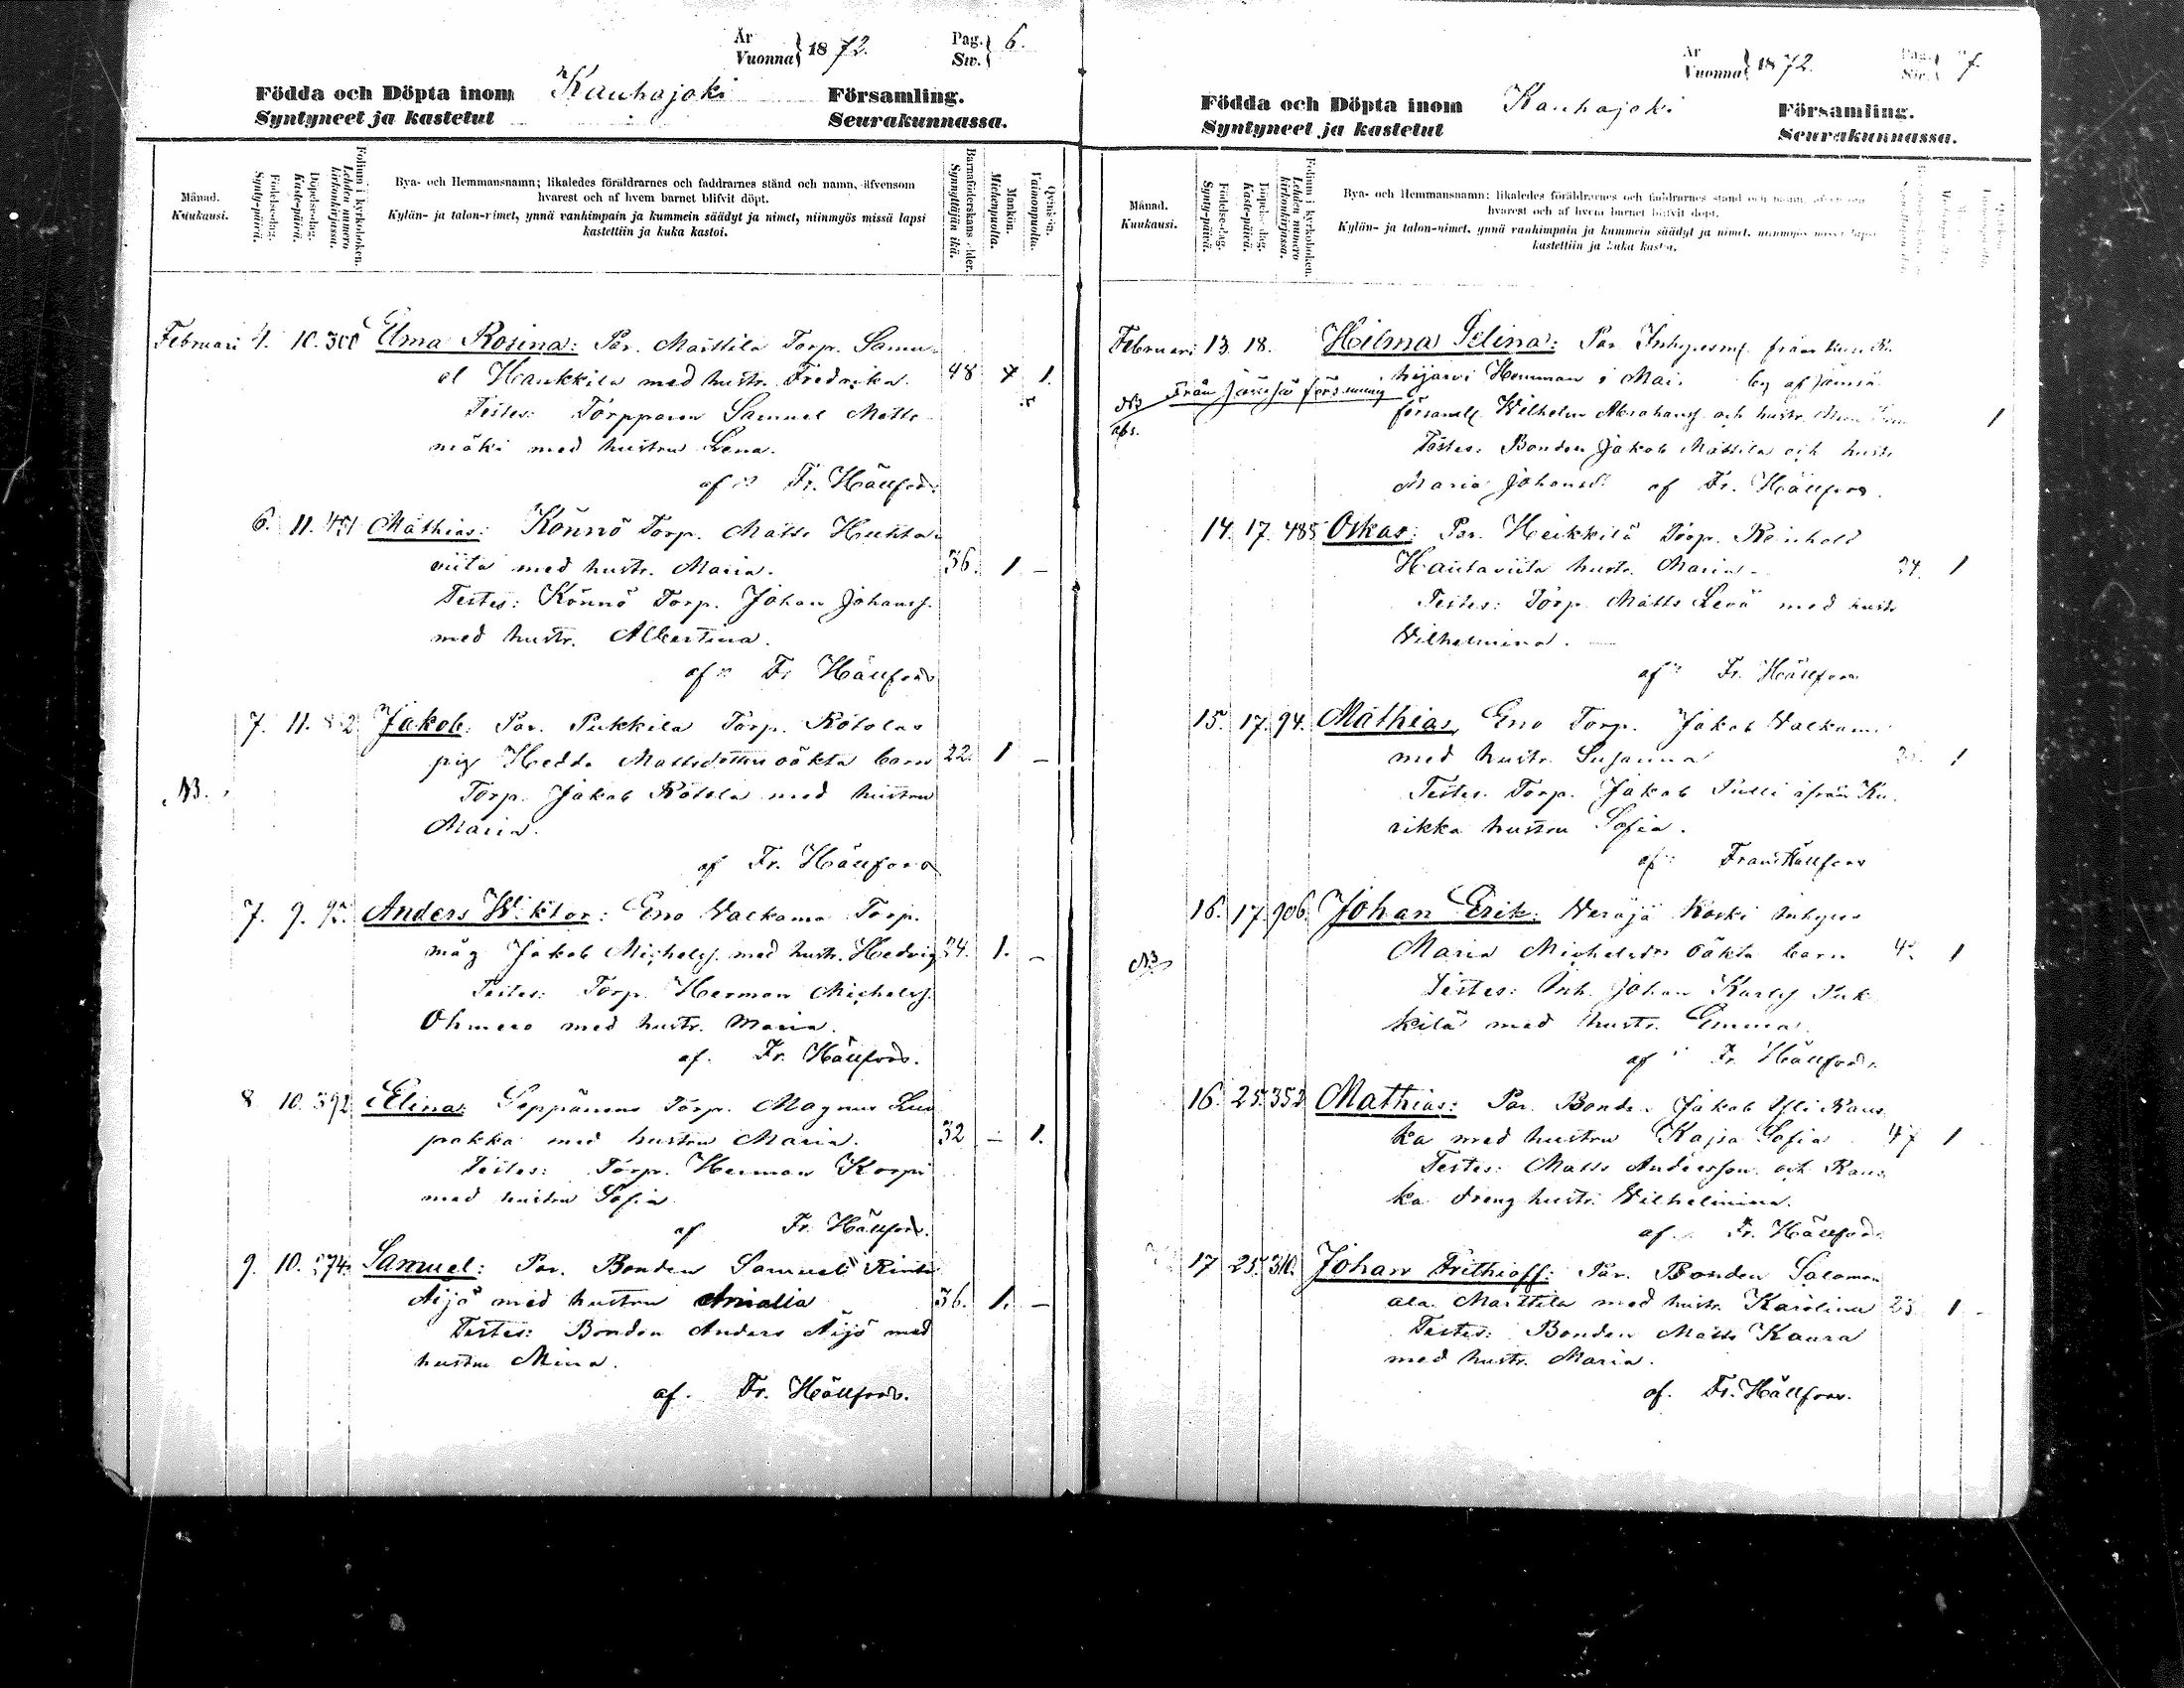 År
Vuonna 1872.
Pag.
Siv. 6.
Födda och Döpta inom Kauhajoki Församling.
Syntyneet ja kastetut Seurakunnassa.
Månad.
Kuukausi.
Födelse-dag.
Synty-päivä.
Döpelse-dag.
Kaste-päivä.
Folium i kyrkoboken.
Lehden numero kirkonkirjassa.
Bya- och Hemmansnamn; likaledes föräldrarnes och faddrarnes stånd och namn, äfvensom
hvarest och af hvem barnet blifvit döpt.
Kylän- ja talon-nimet, ynnä vanhimpain ja kummein säädyt ja nimet, niinmyös missä lapsi
kastettiin ja kuka kastoi.
Barnaföderskans ålder.
Synnyttäjän ikä.
Mankön.
Miehenpuolia.
Qvinkön.
Vaimonpuolia.
Februari 4. 10. 300 Elma Rosina: Par. Marttila Torp. Samu-
el Haukkila med hustr. Fredrika. 48 1.
Testes: Torpparen Samuel Matts
mäki med hustru Lena.
af Fr. Hällfors.
6. 11. Mathias: Könnö Torp. Matts Huhta-
viita med hustr. Maria. 36. 1 –
Testes: Könnö Torp. Johan Johanss.
med hustr. Albertina.
af Fr. Hällfors
7. 11. Jakob. Par. Pukkila Torp. Rötolas
pig Hedda Mattsdotters oäkta barn 22. 1 –
NB. Torp. Jakob Rötola med hustru
Maria.
af Fr. Hällfors
7. 9. 95. Anders Wiktor: Eno Walkama Torp.
måg Jakob Michelss. med hustr. Hedvig 24. 1. –
Testes: Torp. Herman Michelss.
Ohmero med hustr. Maria.
af. Fr. Hällfors.
8 10. 392 Elina: Seppänens Torp. Magnus Luo
pakka med hustru Maria. 32 – 1.
Testes: Torp. Herman Korpi
med hustru Sofia
af Fr. Hällfors.
9. 10. 274. Samuel: Par. Bonden Samuel Rinta
Äijö med hustru Amalia 36. 1. –
Testes: Bonden Anders Äijö med
hustru Mina.
af. Fr. Hällfors.
År
Vuonna 1872.
Pag.
Siv. 7
Födda och Döpta inom Kauhajoki Församling.
Syntyneet ja kastetut Seurakunnassa.
Månad.
Kuukausi.
Födelse-dag.
Synty-päivä.
Döpelse-dag.
Kaste-päivä.
Folium i kyrkoboken.
Lehden numero kirkonkirjassa.
Bya- och Hemmansnamn: likaledes föräldrarnes och faddrarnes stånd och namn, äfvensom
hvarest och af hvem barnet blifvit döpt.
Kylän- ja talon-nimet, ynnä vanhimpain ja kummein säädyt ja nimet, niinmyös missä lapsi
kastettiin ja kuka kastoi.
Februari 13. 18. Hilma Selina: Par. Inhyesm. från
hijärvi Hemman i by af Jämsä
NB Från Jämsä församling församl. Wilhelm Abrahamss. och hustr. 1
Testes: Bonden Jakob Mattila och hustr.
Maria Johansd. af Fr. Hällfors.
14. 17. 485 Oskar: Par. Heikkilä Torp. Reinhold
Hautaviita hustr. Maria. 24. 1
Testes: Torp. Matts Levä med hustr
Wilhelmina.
af Fr. Hällfors
15. 17. 94. Mathias, Eno Torp. Jakob Walkam
med hustr. Susanna 1
Testes. Torp. Jakob Tulli ifrån Ku-
rikka hustru Sofia.
af Frans Hällfors
16. 17. 906. Johan Erik. Weräjä Koski Inhyses
NB Maria Michelsdrs oäkta barn 1
Testes: Inh. Johan Karlss. Puk
kilä med hustr. Emma.
af Fr. Hällfors.
16. 25. 352 Mathias: Par. Bonden Jakob Yli Raus
ka med hustru Kajsa Sofia 47 1
Testes: Matts Andersson och Raus
ka dreng hustr. Wilhelmina.
af. Fr. Hällfors.
17 25. 310. Johan Frithioff: Par. Bonden Salomon
ala Marttila med hustr. Karolina 25 1 –
Testes: Bonden Matts Kaura
med hustr. Maria.
af. Fr. Hällfors.